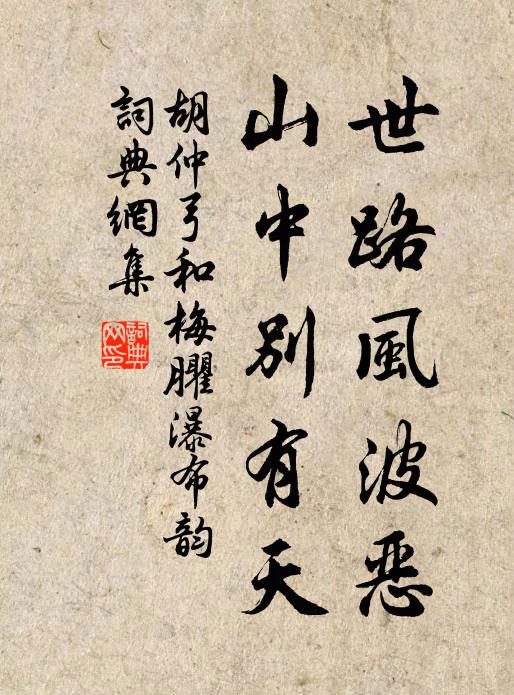 世路風波恶
山中別有天
胡仲弓和梅臞瀑布韵
詞典網集
詞典
网印